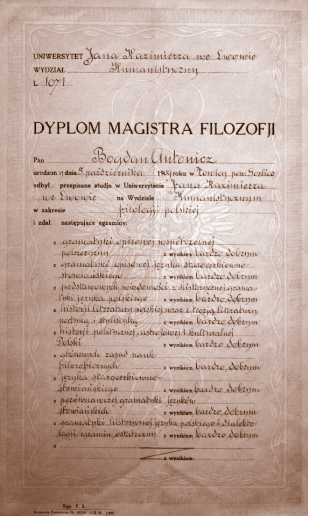 UNIWERSYTET Jana Kazimierza we Lwowie
WYDZIAŁ Humanistyczny
L. 1071
DYPLOM MAGISTRA FILOZOFJI
Pan Bogdan Antonicz
urodzony dnia 5 października 1909 roku w Nowicy pow. Gorlice
odbył przepisane studja w Uniwersytecie Jana Kazimierza
we Lwowie na Wydziale Humanistycznym
w zakresie filologji polskiej
i zdał następujące egzaminy:
z gramatyki opisowej współczesnej
polszczyzny z wynikiem bardzo dobrym
z gramatyki opisowej języka starocerkiewno-
słowiańskiego z wynikiem bardzo dobrym
z podstawowych wiadomości z historycznej grama
tyki języka polskiego z wynikiem bardzo dobrym
z historji literatury polskiej wraz z teorją literatury,
poetyką i stylistyką z wynikiem bardzo dobrym
z historji politycznej, ustrojowej i kulturalnej
Polski z wynikiem bardzo dobrym
z głównych zasad nauk
filozoficznych z wynikiem bardzo dobrym
z języka starocerkiewno-
słowiańskiego z wynikiem bardzo dobrym
z porównawczej gramatyki języków
słowiańskich z wynikiem bardzo dobrym
z gramatyki historycznej języka polskiego i dialekto-
logji egzamin ostateczny z wynikiem bardzo dobrym
z
z wynikiem